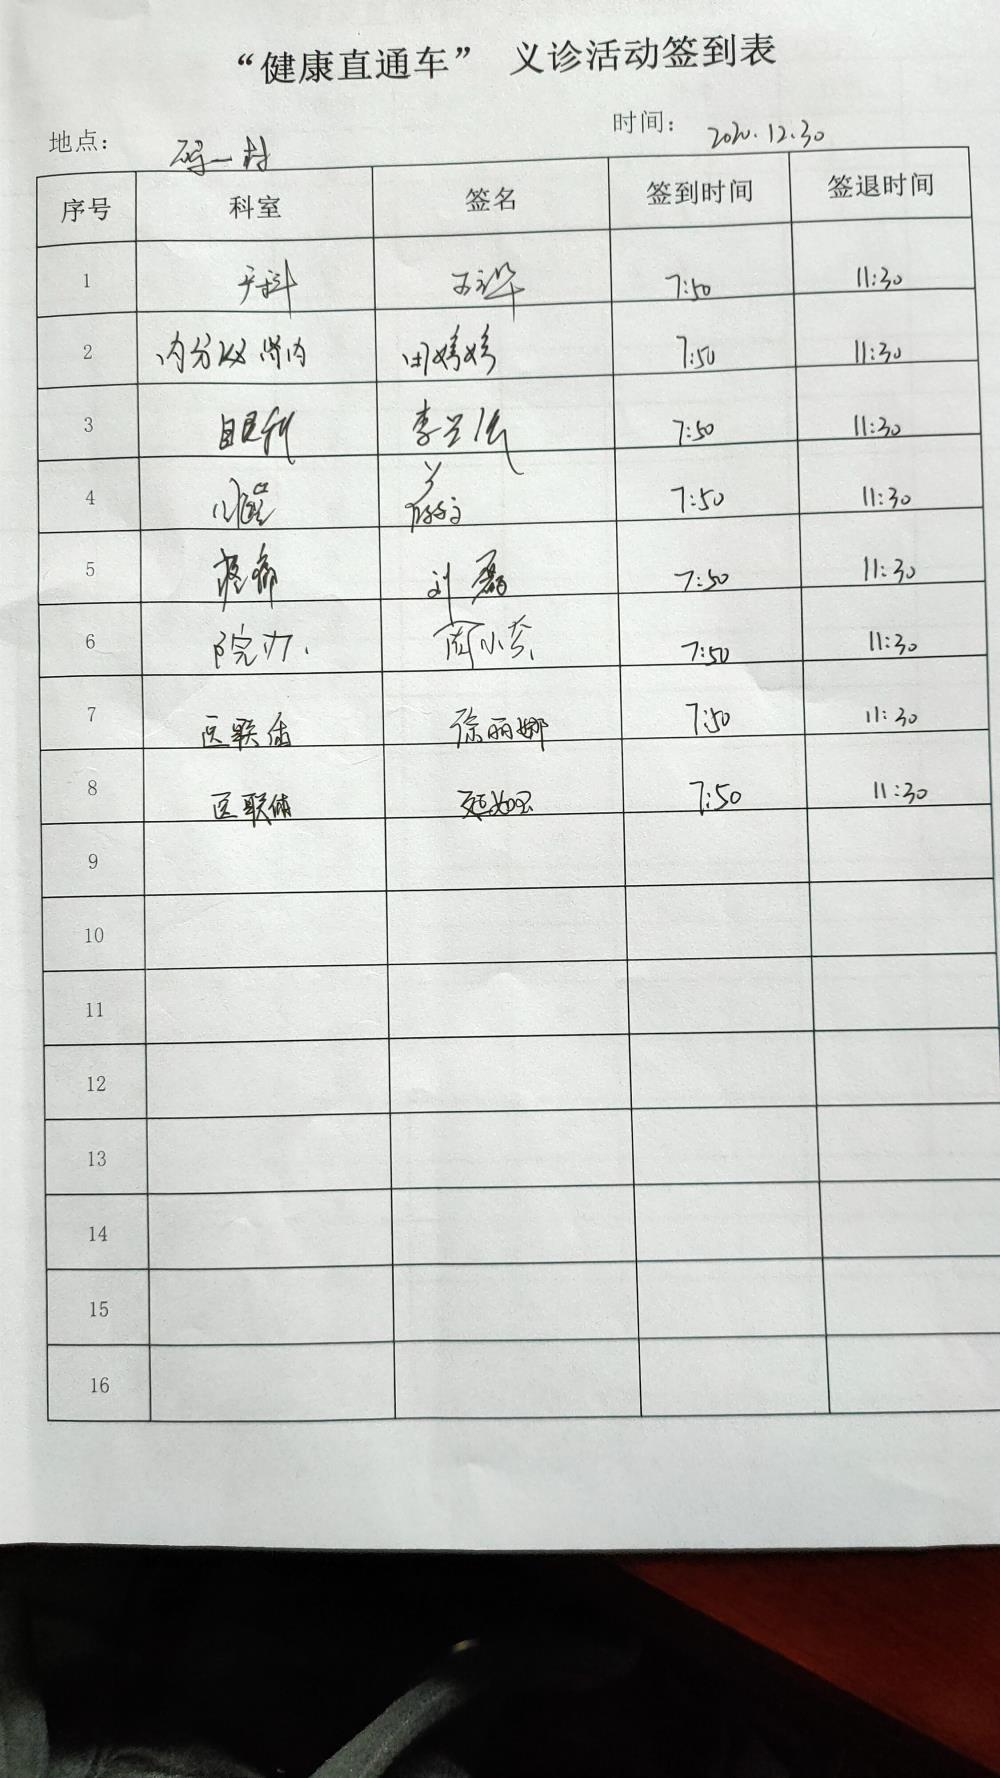 “健康直通车” 义诊活动签到表
地点： 一村 时间： 2020.12.30
序号 科室 签名 签到时间 签退时间
1 7:50 11:30
2 内分泌 肾内 田婷婷 7:50 11:30
3 眼科 李 7:50 11:30
4 7:50 11:30
5 疼痛 刘磊 7:50 11:30
6 院办 周小芬 7:50 11:30
7 医联体 徐丽娜 7:50 11:30
8 医联体 7:50 11:30
9
10
11
12
13
14
15
16